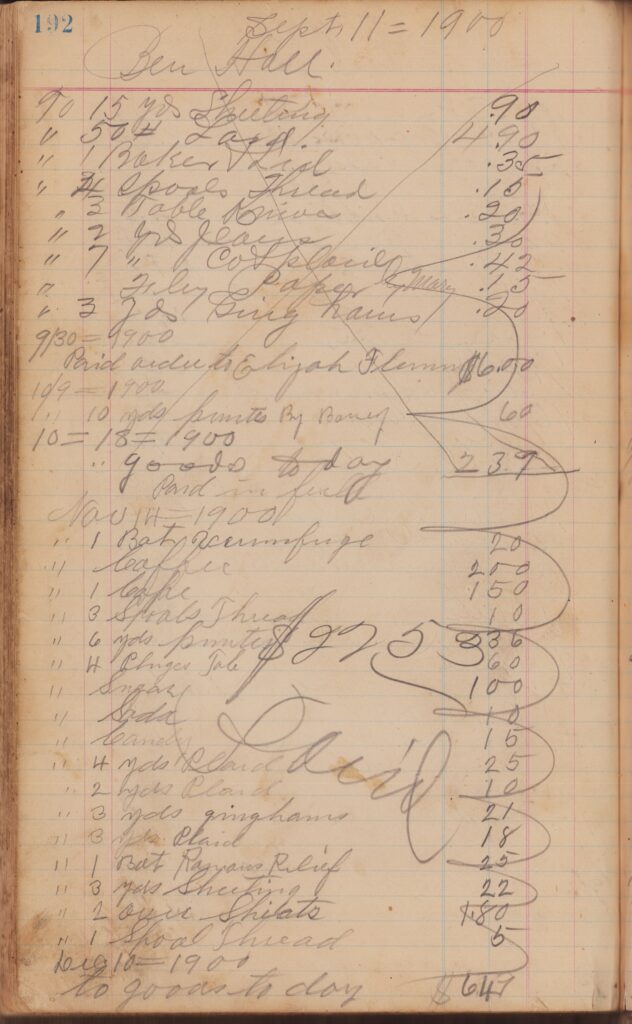 192
Sept 11 = 1900
Ben Hall.
To 15 yds Sheeting .90
" 50 # Lard 4 90
" 1 Baker & Lid .35
" 4 Spools Thread .15
" 3 Table Knives .20
" 2 yds Jeans .30
" 7 " Cot plaid .42
" Paper .15
Mary
" 3 yds Ginghams .20
9/30 = 1900
Paid order to Elijah Flemm $6.00
10/9 = 1900
" 10 yds prints By 60
10 = 18 = 1900
" goods to day 2 39
Paid in full
Nov 14 = 1900
" 1 Bot 20
" Coffee 200
" 1 150
" 3 Spools Thread 10
" 6 yds prints 36
$22 53
" 4 Plugs Tob 60
" Sugar 100
" Soda 10
Paid
" Candy 15
" 4 yds Plaid 25
" 2 yds Plaid 10
" 3 yds ginghams 21
" 3 yds Plaid 18
" 1 Bot Ramons Relief 25
" 3 yds Sheeting 22
" 2 over Shirts 1.80
" 1 Spool Thread 5
Dec 10 = 1900
to goods to day $ 647